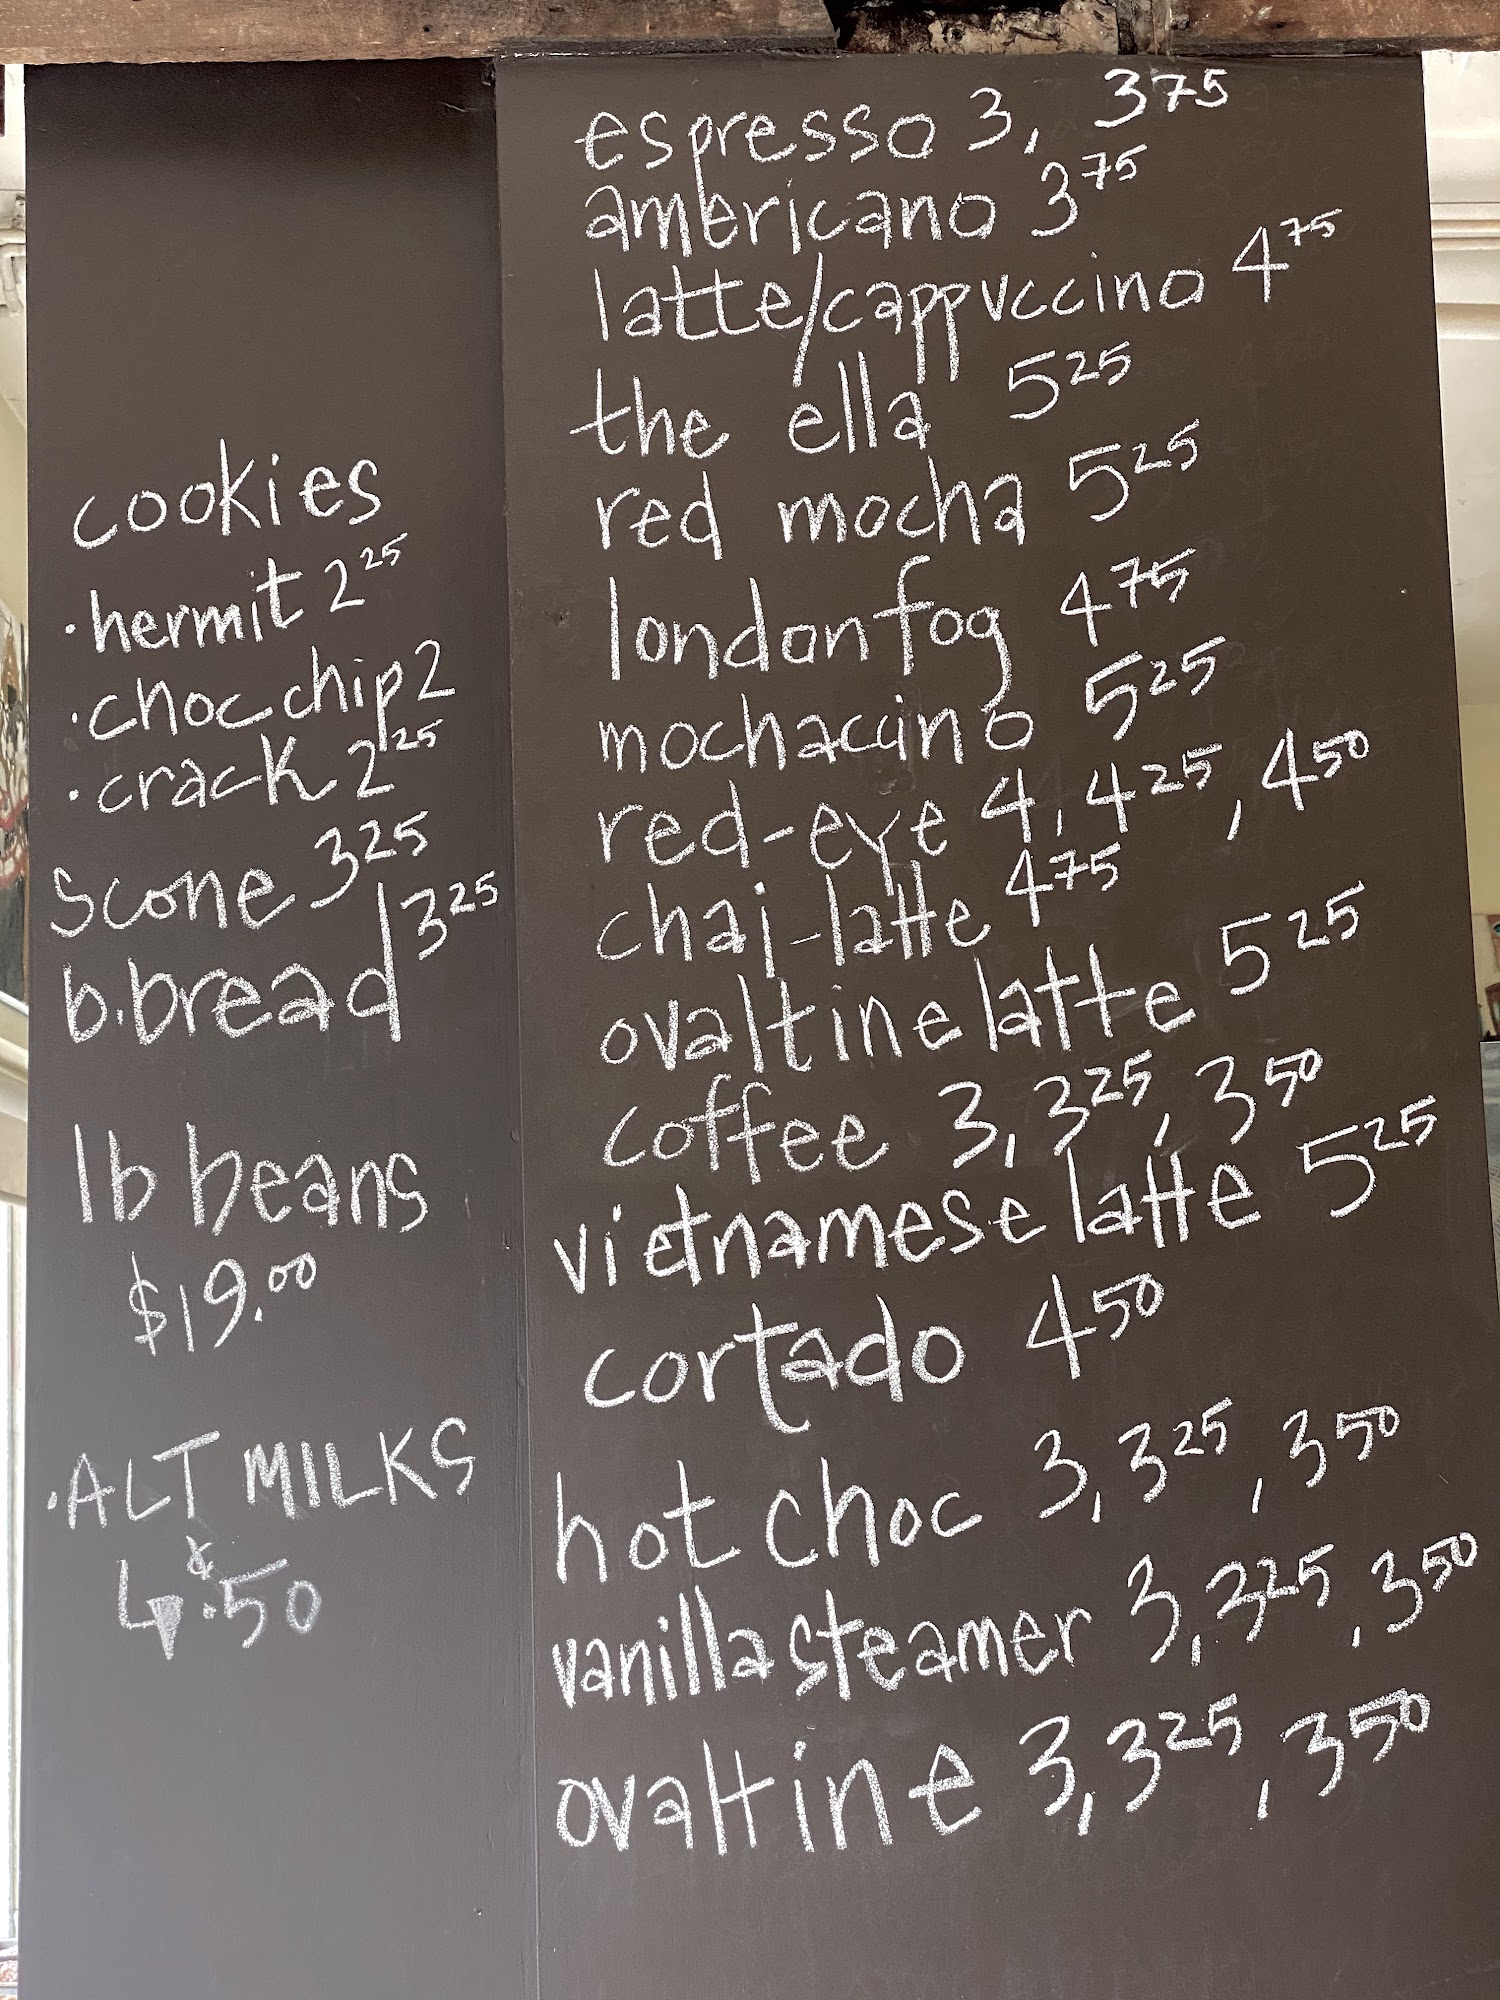 cookies
·hermit 2 25
·choc chip 2
·crack 2 25
scone 3 25
b.bread 3 25
lb beans
$19.00
·ALT MILKS
&
.50
espresso 3, 3 75
americano 3 75
latte/cappuccino 4 75
the ella 5 25
red mocha 5 25
london fog 4 75
mochaccino 5 25
red-eye 4, 4 25, 4 50
chai-latte 4 75
ovaltine latte 5 25
coffee 3, 3 25, 3 50
vietnamese latte 5 25
cortado 4 50
hot choc 3, 3 25, 3 50
vanilla steamer 3, 3 25, 3 50
ovaltine 3, 3 25, 3 50